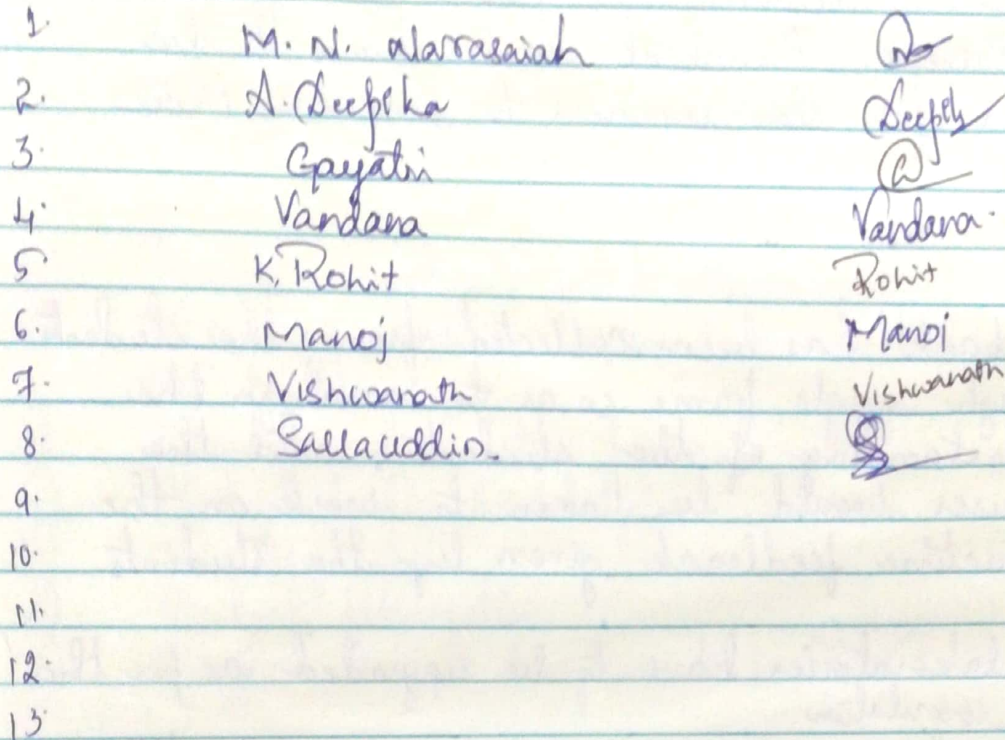 1. M. N. Narrasaiah
2. A. Deepika Deepik
3. Gayatri
4. Vandana Vandana.
5 K. Rohit Rohit
6. Manoj Manoj
7. Vishwanath Vishwanath
8. Sallauddin.
9.
10.
11.
12.
13